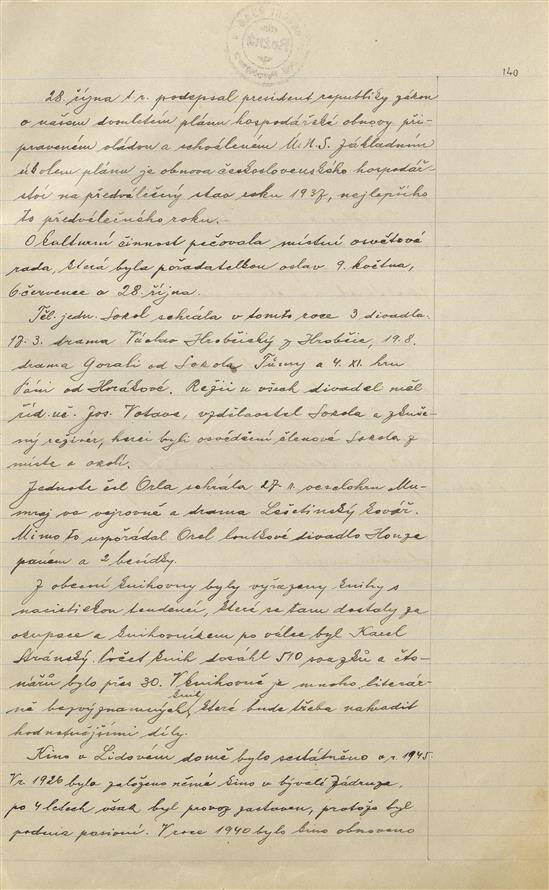 140
28. října t. r. podepsal president republiky zákon
o našem dvouletém plánu hospodářské obnovy při-
praveném vládou a schváleném Ú.N.S. Základním
úkolem plánu je obnova československého hospodář-
ství na předválečný stav roku 1937, nejlepšího
to předválečného roku.-
O kulturní činnost pečovala místní osvětová
rada, která byla pořadatelkou oslav 9. května,
6 července a 28. října.
Těl. jedn. Sokol sehrála v tomto roce 3 divadla.
17. 3. drama Václav Hrobčický z Hrobčic, 19.8.
drama Gorali od Sokola Tůmy a 4. XI. hru
Páni od Horákové. Režii u všech divadel měl
říd. uč. Jos. Votava, vzdělavatel Sokola a zkuše-
ný režisér, herci byli osvědčení členové Sokola z
místa a okolí.
Jednota čsl Orla sehrála 27. II. veselohru Mu-
mraj ve vejrovně a drama Lešetínský kovář.
Mimo to uspořádal Orel loutkové divadlo Honza
pánem a 2 besídky.
Z obecní knihovny byly vyřazeny knihy s
nacistickou tendencí, které se tam dostaly za
okupace a knihovníkem po válce byl Karel
Stránský. Počet knih dosáhl 510 svazků a čte-
nářů bylo přes 30. V knihovně je mnoho literár-
ně bezvýznamných knih, které bude třeba nahradit
hodnotnějšími díly.
Kino v Lidovém domě bylo sestátněno v r. 1945.
V r. 1926 bylo založeno němé kino v bývalé Zádruze,
po 4 letech však byl provoz zastaven, protože byl
podnik pasivní. V roce 1940 bylo kino obnoveno